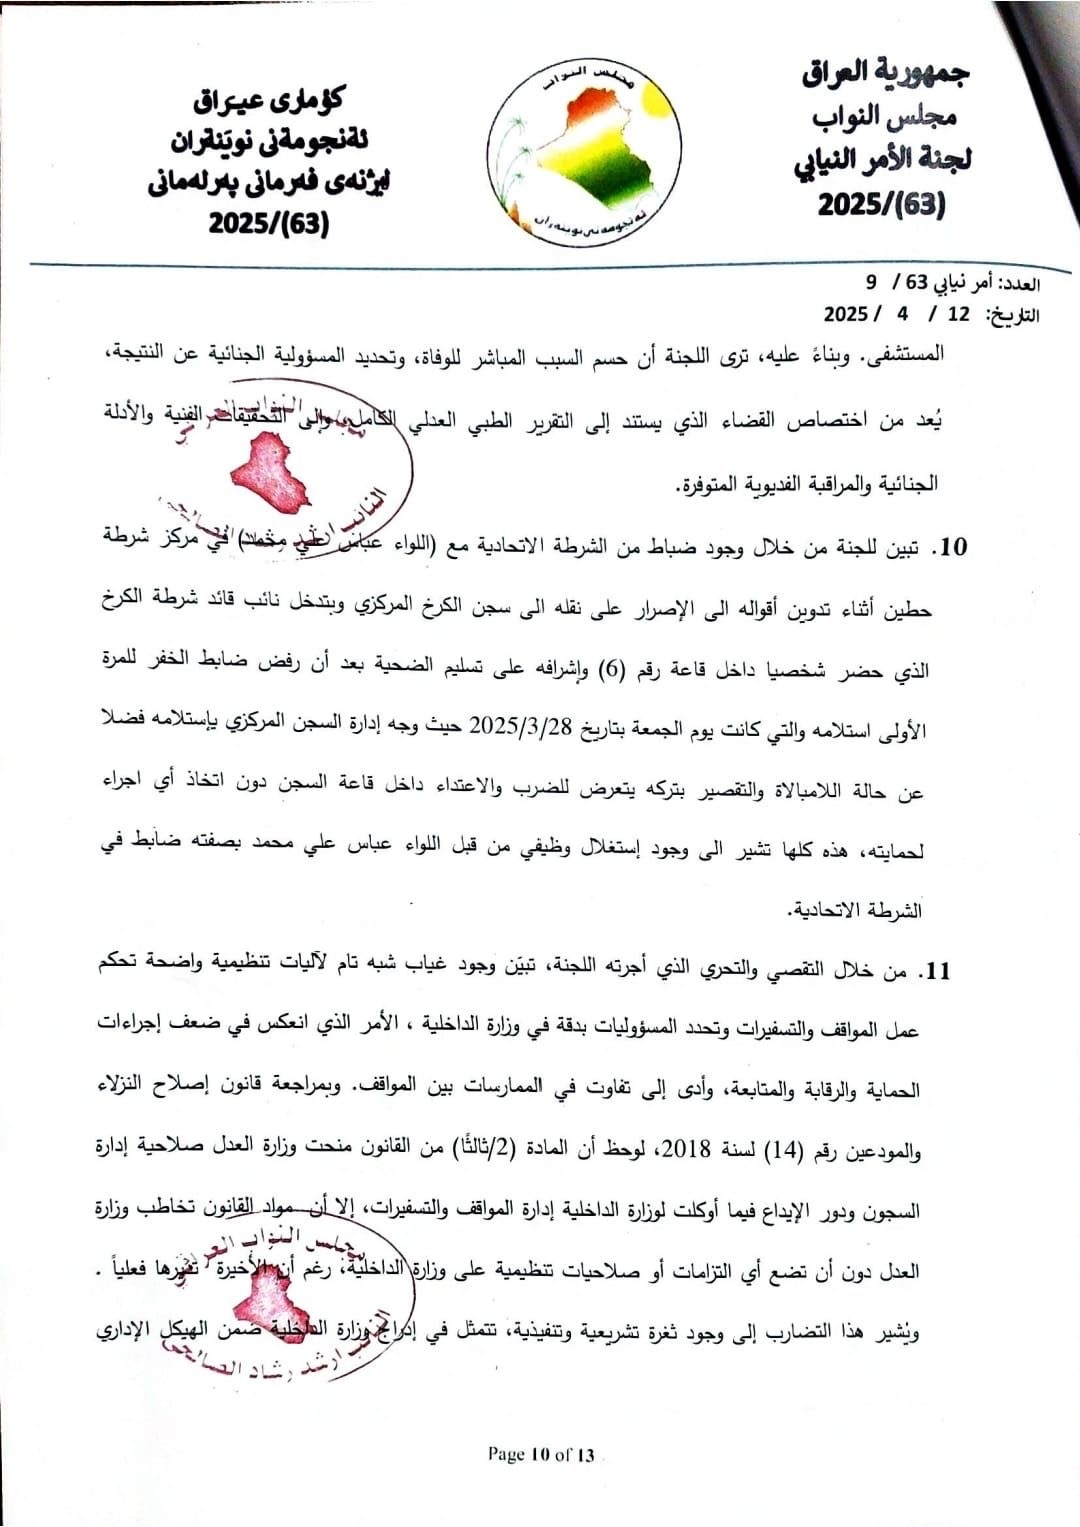 جمهورية العراق
مجلس النواب
لجنة الأمر النيابي
2025/(63)
كۆماری عیـراق
ئەنجومەنی نوێنەران
لیژنەی فەرمانی پەرلەمانی
2025/(63)
مجلس النواب
ئەنجومەنی نوێنەران
العدد: أمر نيابي 63 / 9
التاريخ: 12 / 4 / 2025
المستشفى. وبناءً عليه، ترى اللجنة أن حسم السبب المباشر للوفاة، وتحديد المسؤولية الجنائية عن النتيجة،
يُعد من اختصاص القضاء الذي يستند إلى التقرير الطبي العدلي الكامل، وإلى التحقيقات الفنية والأدلة
الجنائية والمراقبة الفديوية المتوفرة.
10. تبين للجنة من خلال وجود ضباط من الشرطة الاتحادية مع (اللواء عباس علي محمد) في مركز شرطة
حطين أثناء تدوين أقواله الى الإصرار على نقله الى سجن الكرخ المركزي وبتدخل نائب قائد شرطة الكرخ
الذي حضر شخصيا داخل قاعة رقم (6) وإشرافه على تسليم الضحية بعد أن رفض ضابط الخفر للمرة
الأولى استلامه والتي كانت يوم الجمعة بتاريخ 2025/3/28 حيث وجه إدارة السجن المركزي بإستلامه فضلا
عن حالة اللامبالاة والتقصير بتركه يتعرض للضرب والاعتداء داخل قاعة السجن دون اتخاذ أي اجراء
لحمايته، هذه كلها تشير الى وجود إستغلال وظيفي من قبل اللواء عباس علي محمد بصفته ضابط في
الشرطة الاتحادية.
11. من خلال التقصي والتحري الذي أجرته اللجنة، تبيّن وجود غياب شبه تام لآليات تنظيمية واضحة تحكم
عمل المواقف والتسفيرات وتحدد المسؤوليات بدقة في وزارة الداخلية ، الأمر الذي انعكس في ضعف إجراءات
الحماية والرقابة والمتابعة، وأدى إلى تفاوت في الممارسات بين المواقف. وبمراجعة قانون إصلاح النزلاء
والمودعين رقم (14) لسنة 2018، لوحظ أن المادة (2/ثالثًا) من القانون منحت وزارة العدل صلاحية إدارة
السجون ودور الإيداع فيما أوكلت لوزارة الداخلية إدارة المواقف والتسفيرات، إلا أن مواد القانون تخاطب وزارة
العدل دون أن تضع أي التزامات أو صلاحيات تنظيمية على وزارة الداخلية، رغم أن الأخيرة تديرها فعلياً .
ويُشير هذا التضارب إلى وجود ثغرة تشريعية وتنفيذية، تتمثل في إدراج وزارة الداخلية ضمن الهيكل الإداري
مجلس النواب
النائب ارشد رشاد الصالحي
Page 10 of 13